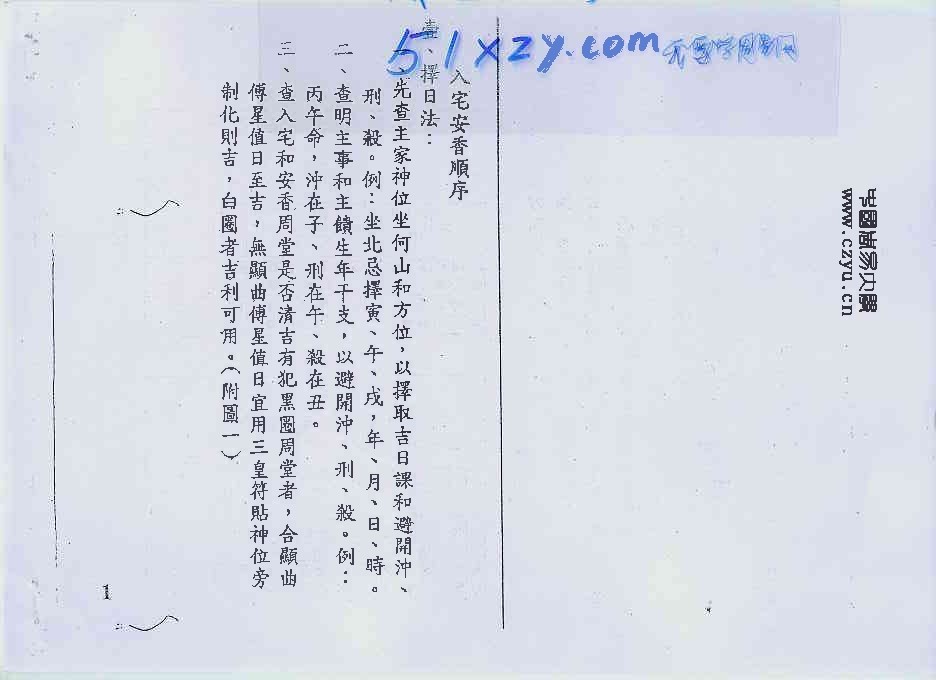 51xzy.com
www.czyu.cn
入宅安香順序
壹、擇日法：
一、先查主家神位坐何山和方位，以擇取吉日課和避開沖、
刑、殺。例：坐北忌擇寅、午、戌，年、月、日、時。
二、查明主事和主饋生年干支，以避開沖、刑、殺。例：
丙午命，沖在子、刑在午、殺在丑。
三、查入宅和安香周堂是否清吉有犯黑圈周堂者，合顯曲
傅星值日至吉，無顯曲傅星值日宜用三皇符貼神位旁
制化則吉，白圈者吉利可用。（附圖一）
1